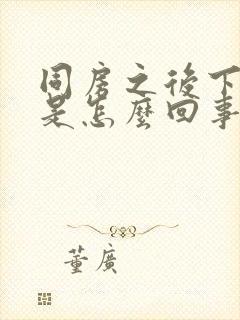 同房之後下
是怎麼回事
董廣